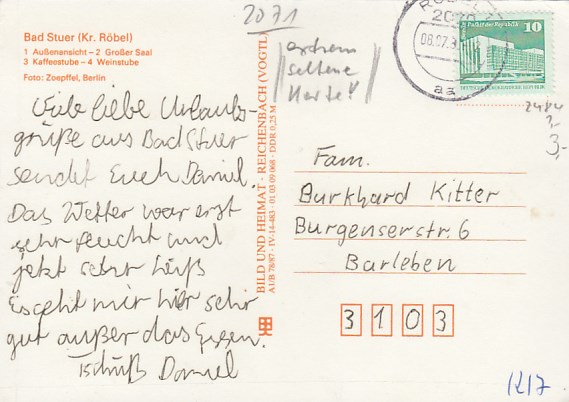 Bad Stuer (Kr. Röbel)
1 Außenansicht – 2 Großer Saal
3 Kaffeestube – 4 Weinstube
Foto: Zoepffel, Berlin
Viele liebe Urlaubs-
grüße aus Bad Stuer
sendet Euch Daniel.
Das Wetter war erst
sehr feucht und
jetzt sehr heiß
Es geht mir hier sehr
gut außer das Essen.
Tschüß Daniel
2071
extrem
seltene
Karte!
BILD UND HEIMAT · REICHENBACH (VOGTL)
A1/B 78/87 · IV-14-483 · 01 03 09 068 · DDR 0,25 M
2070
aa
10
2484
3,-
Fam.
Burkhard Kitter
Burgenserstr. 6
Barleben
3103
1217